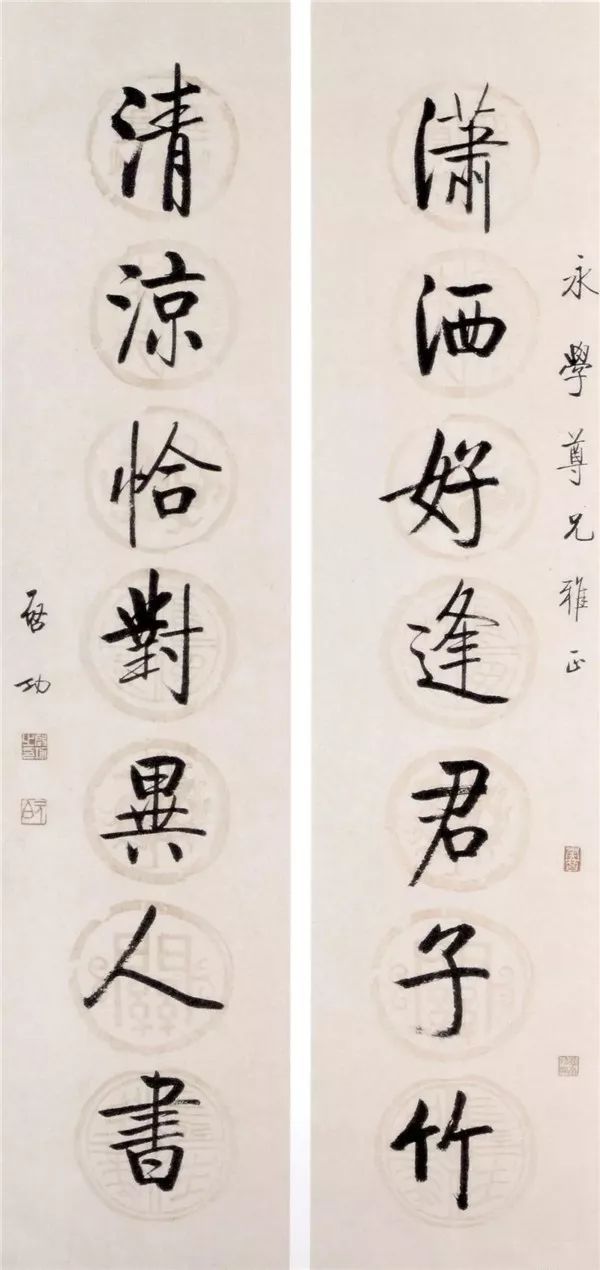 永學尊兄雅正
瀟洒好逢君子竹
清涼恰對異人書
啓功